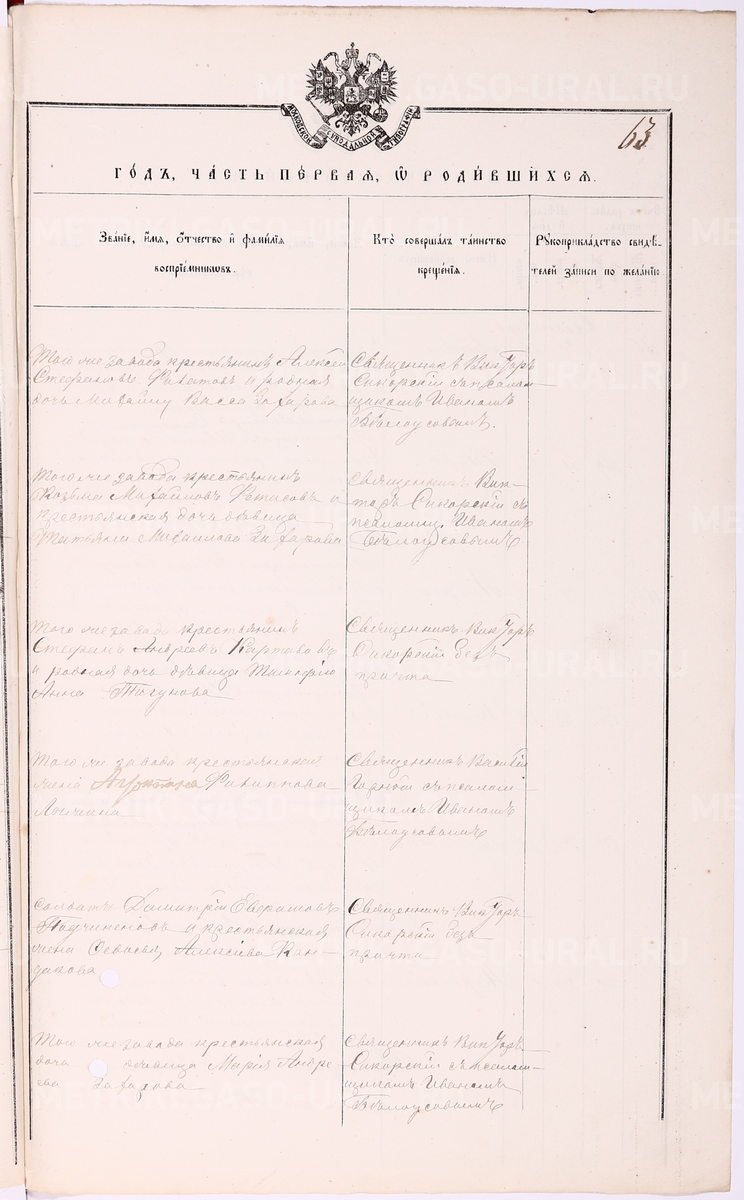 МОСКОВСКОЙ СѴНОДАЛЬНОЙ ТИПОГРАФІИ
63
ГО́ДЪ, ЧА́СТЬ ПЕ́РВАЯ, Ѿ РОДИ́ВШИХСЯ.
Зва́нїе, и҆́мѧ, ѻ҆́тчество и҆ фами́лїѧ
воспрїе́мникѡвъ.
Кто̀ соверша́лъ та́инство
креще́нїѧ.
Рꙋкоприкла́дство свидѣ́-
телей за́писи по жела́нїю
Того же завода крестьянинъ Алексѣй
Стефановъ и родная
дочь Васса Захарова
Священникъ Викторъ
Сикорскій съ псалом-
щикомъ Иваномъ
Бѣлоусовымъ.
Того же завода крестьянинъ
Козьма Михаиловъ Фетисовъ и
крестьянская дочь дѣвица
Татьяна Михаилова Захарова
Священникъ Вик-
торъ Сикорскій съ
псаломщ. Иваномъ
Бѣлоусовымъ
Того же завода крестьянинъ
Стефанъ Андреевъ
и родная дочь дѣвица
Анна
Священникъ Викторъ
Сикорскій безъ
причта
Того же завода крестьянской
жена Филиппова
Священникъ Василій
съ псалом-
щикомъ Иваномъ
Бѣлоусовымъ
Солдатъ Димитрій
и крестьянская
жена Алексѣева Кан-
дакова
Священникъ Викторъ
Сикорскій безъ
причта
Того же завода крестьянская
дочь дѣвица Марія Андре
ева Захарова
Священникъ Викторъ
Сикорскій съ псалом-
щикомъ Иваномъ
Бѣлоусовымъ